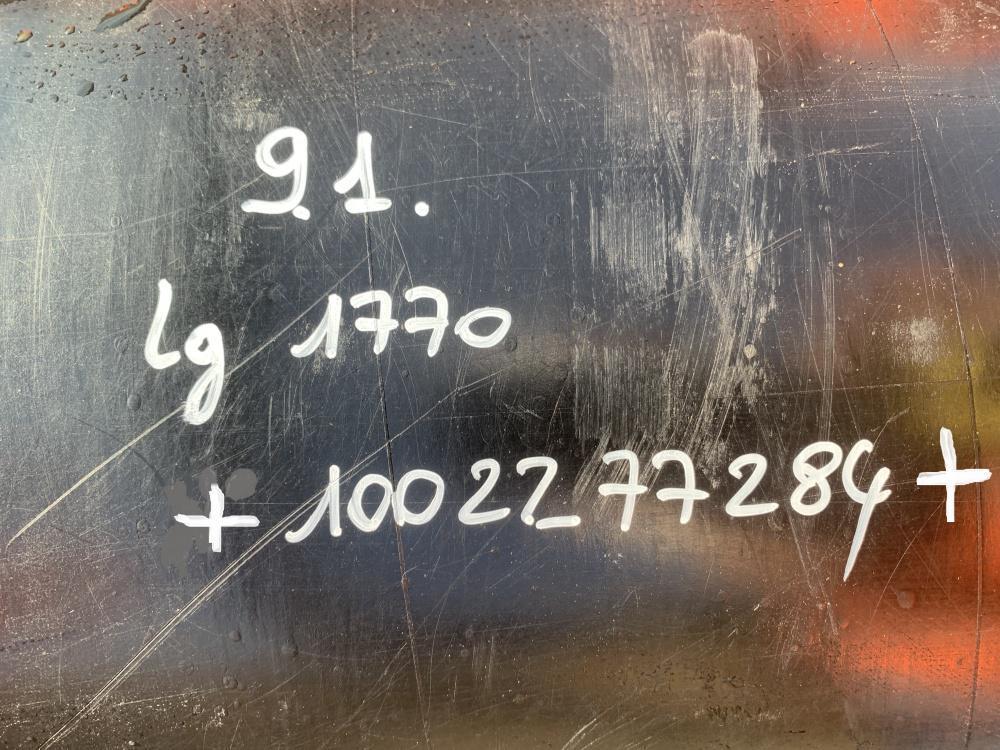 91.
lg 1770
+ 10022 77284 +